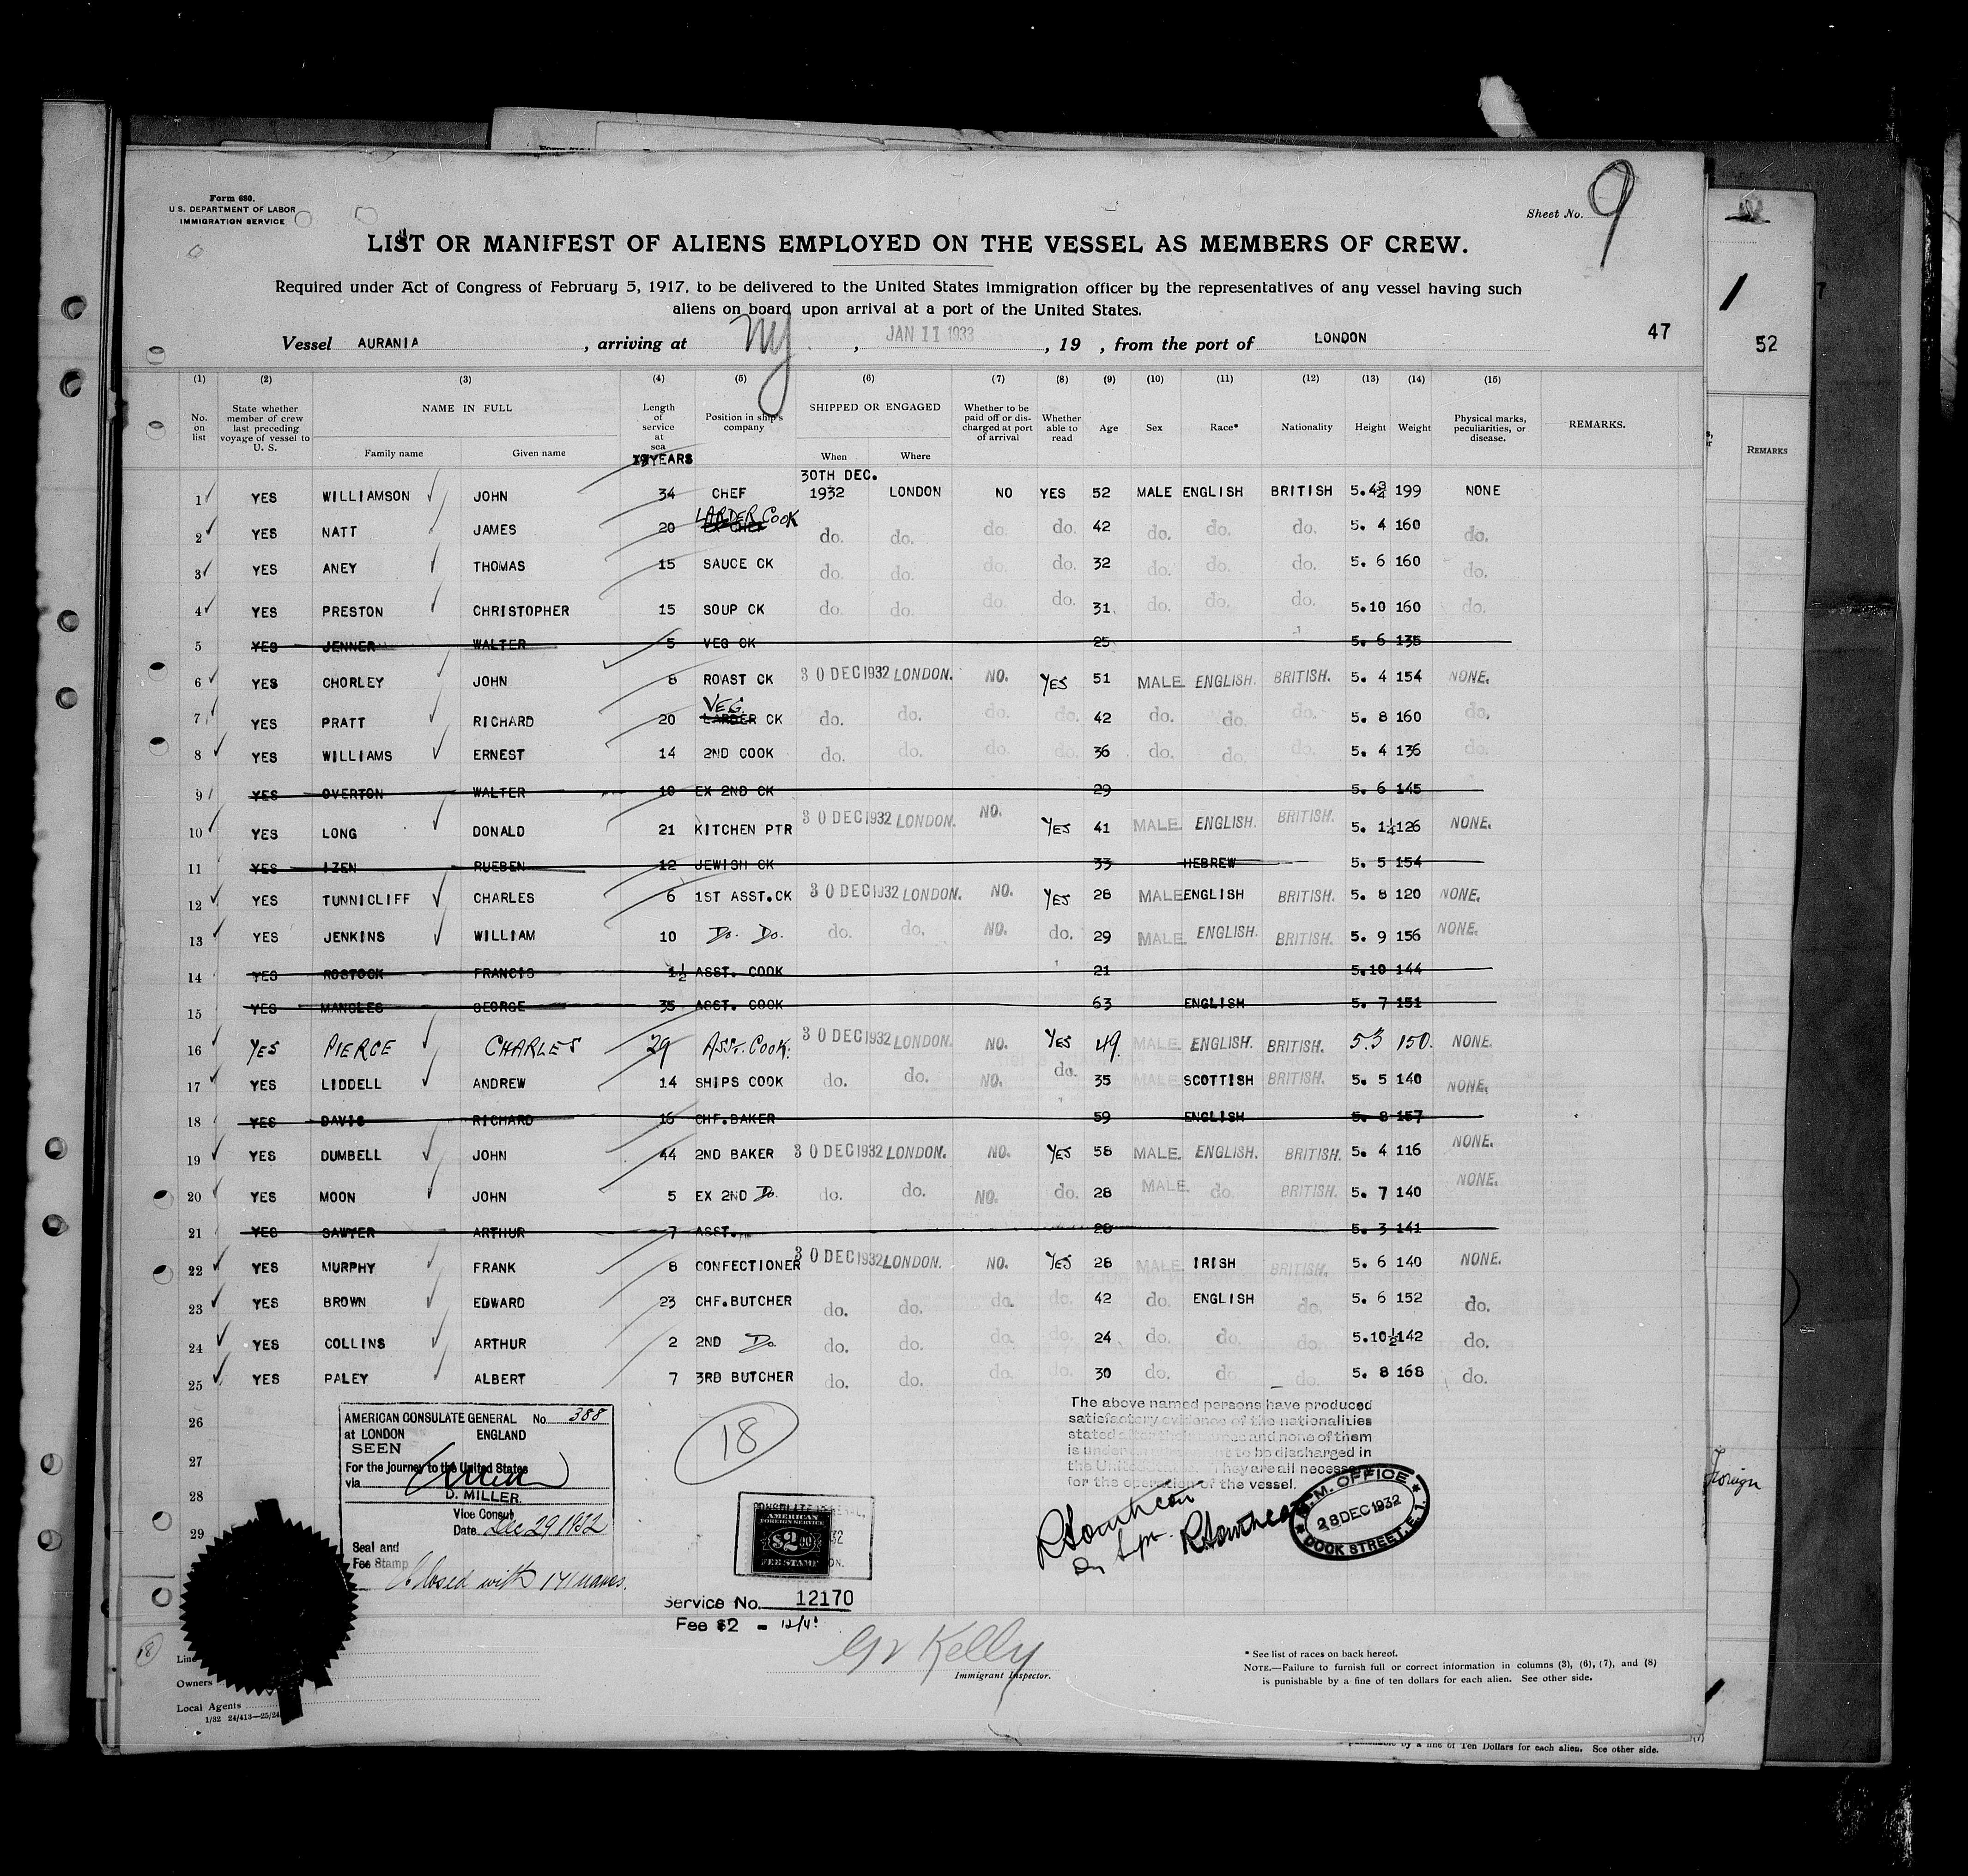 Form 680.
U.S. DEPARTMENT OF LABOR
IMMIGRATION SERVICE
Sheet No. 9
LIST OR MANIFEST OF ALIENS EMPLOYED ON THE VESSEL AS MEMBERS OF CREW.
Required under Act of Congress of February 5, 1917, to be delivered to the United States immigration officer by the representatives of any vessel having such
aliens on board upon arrival at a port of the United States.
Vessel AURANIA, arriving at NY, JAN 11 1933, 19 , from the port of LONDON 47
(1) (2) (3) (4) (5) (6) (7) (8) (9) (10) (11) (12) (13) (14) (15)
No. on list State whether member of crew last preceding voyage of vessel to U. S. NAME IN FULL Family name Given name Length of service at sea Position in ship's company SHIPPED OR ENGAGED When Where Whether to be paid off or discharged at port of arrival Whether able to read Age Sex Race* Nationality Height Weight Physical marks, peculiarities, or disease. REMARKS.
YEARS 30TH DEC.
1 YES WILLIAMSON JOHN 34 CHEF 1932 LONDON NO YES 52 MALE ENGLISH BRITISH 5.4¾ 199 NONE
2 YES NATT JAMES 20 LARDER COOK do. do. do. do. 42 do. do. do. 5. 4 160 do.
3 YES ANEY THOMAS 15 SAUCE CK do. do. do. do. 32 do. do. do. 5. 6 160 do.
4 YES PRESTON CHRISTOPHER 15 SOUP CK do. do. do. do. 31 do. do. do. 5.10 160 do.
5 YES JENNER WALTER 5 VEG CK 25 5. 6 135
6 YES CHORLEY JOHN 8 ROAST CK 30 DEC 1932 LONDON. NO. YES 51 MALE ENGLISH. BRITISH. 5. 4 154 NONE.
7 YES PRATT RICHARD 20 VEG. LARDER CK do. do. do. do. 42 do. do. do. 5. 8 160 do.
8 YES WILLIAMS ERNEST 14 2ND COOK do. do. do. do. 36 do. do. do. 5. 4 136 do.
9 YES OVERTON WALTER 10 EX 2ND CK 29 5. 6 145
10 YES LONG DONALD 21 KITCHEN PTR 30 DEC 1932 LONDON. NO. YES 41 MALE ENGLISH. BRITISH. 5. 1¼ 126 NONE.
11 YES IZEN RUEBEN 12 JEWISH CK 33 HEBREW 5. 5 154
12 YES TUNNICLIFF CHARLES 6 1ST ASST.CK 30 DEC 1932 LONDON. NO. YES 28 MALE ENGLISH BRITISH. 5. 8 120 NONE.
13 YES JENKINS WILLIAM 10 Do. Do. do. do. NO. do. 29 MALE ENGLISH. BRITISH. 5. 9 156 NONE.
14 YES ROSTOCK FRANCIS 1½ ASST. COOK 21 5.10 144
15 YES MANGLES GEORGE 35 ASST. COOK 63 ENGLISH 5. 7 151
16 YES PIERCE CHARLES 29 ASST. COOK. 30 DEC 1932 LONDON. NO. YES 49. MALE ENGLISH. BRITISH. 5.3 150. NONE.
17 YES LIDDELL ANDREW 14 SHIPS COOK do. do. NO. do. 35 MALE SCOTTISH BRITISH. 5. 5 140 NONE.
18 YES DAVIS RICHARD 16 CHF.BAKER 59 ENGLISH 5. 8 157
19 YES DUMBELL JOHN 44 2ND BAKER 30 DEC 1932 LONDON. NO. YES 58 MALE. ENGLISH. BRITISH. 5. 4 116 NONE.
20 YES MOON JOHN 5 EX 2ND Do. do. do. NO. do. 28 MALE. do. BRITISH. 5. 7 140 NONE.
21 YES SAWYER ARTHUR 7 ASST. 28 5. 3 141
22 YES MURPHY FRANK 8 CONFECTIONER 30 DEC 1932 LONDON. NO. YES 28 MALE IRISH BRITISH. 5. 6 140 NONE.
23 YES BROWN EDWARD 23 CHF.BUTCHER do. do. do. do. 42 do. ENGLISH do. 5. 6 152 do.
24 YES COLLINS ARTHUR 2 2ND Do. do. do. do. do. 24 do. do. do. 5.10½ 142 do.
25 YES PALEY ALBERT 7 3RD BUTCHER do. do. do. do. 30 do. do. do. 5. 8 168 do.
26
27
28
29
AMERICAN CONSULATE GENERAL No. 388
at LONDON ENGLAND
SEEN
For the journey to the United States
via
D. MILLER.
Vice Consul
Date Dec 29 1932
Seal and
Fee Stamp
Closed with 141 names.
18
AMERICAN
FOREIGN SERVICE
$2.00
FEE STAMP
Service No. 12170
Fee $2 - 12/4!
The above named persons have produced
satisfactory evidence of the nationalities
stated after their names and none of them
is under to be discharged in
the United They are all necess
for the operation of the vessel.
M. OFFICE
28 DEC 1932
DOCK STREET, E.1.
18
Owners
Local Agents
1/32 24/413—25/24
G V Kelly
Immigrant Inspector.
* See list of races on back hereof.
NOTE.—Failure to furnish full or correct information in columns (3), (6), (7), and (8)
is punishable by a fine of ten dollars for each alien. See other side.
1
52
REMARKS
Foreign
punishable by a fine of Ten Dollars for each alien. See other side.